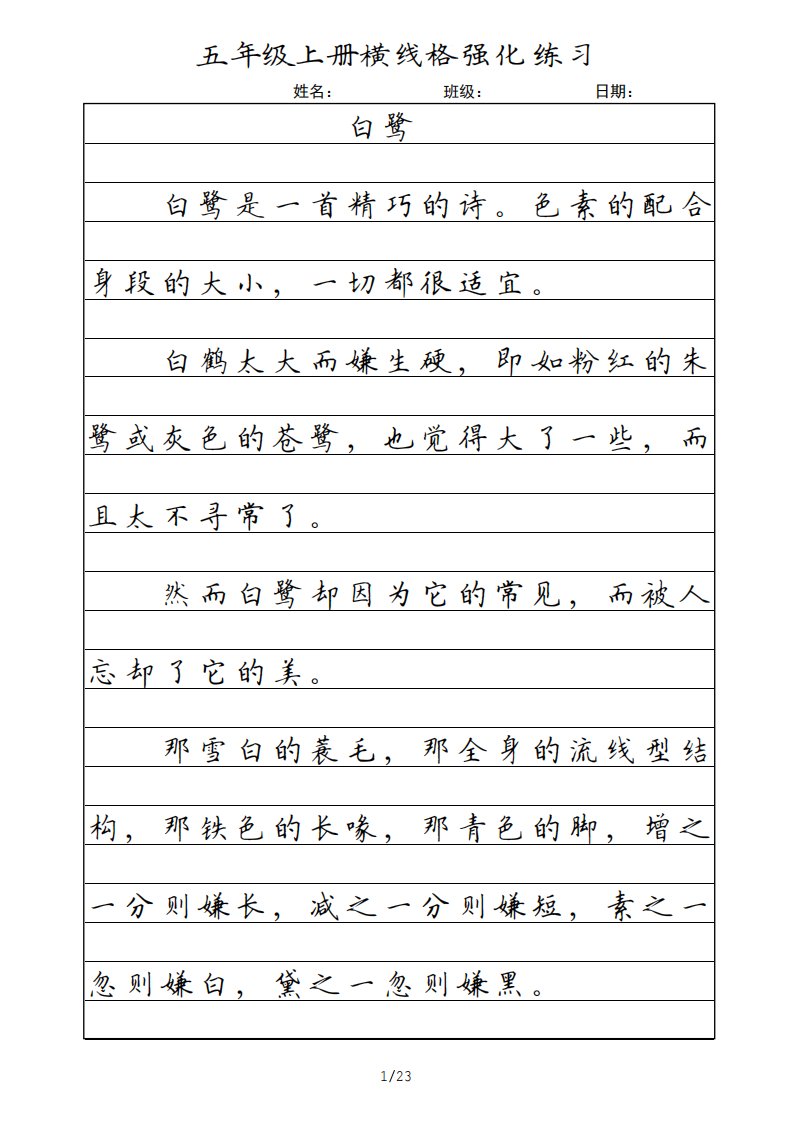 五年级上册横线格强化练习
姓名： 班级： 日期：
白鹭
白鹭是一首精巧的诗。色素的配合
身段的大小，一切都很适宜。
白鹤太大而嫌生硬，即如粉红的朱
鹭或灰色的苍鹭，也觉得大了一些，而
且太不寻常了。
然而白鹭却因为它的常见，而被人
忘却了它的美。
那雪白的蓑毛，那全身的流线型结
构，那铁色的长喙，那青色的脚，增之
一分则嫌长，减之一分则嫌短，素之一
忽则嫌白，黛之一忽则嫌黑。
1/23